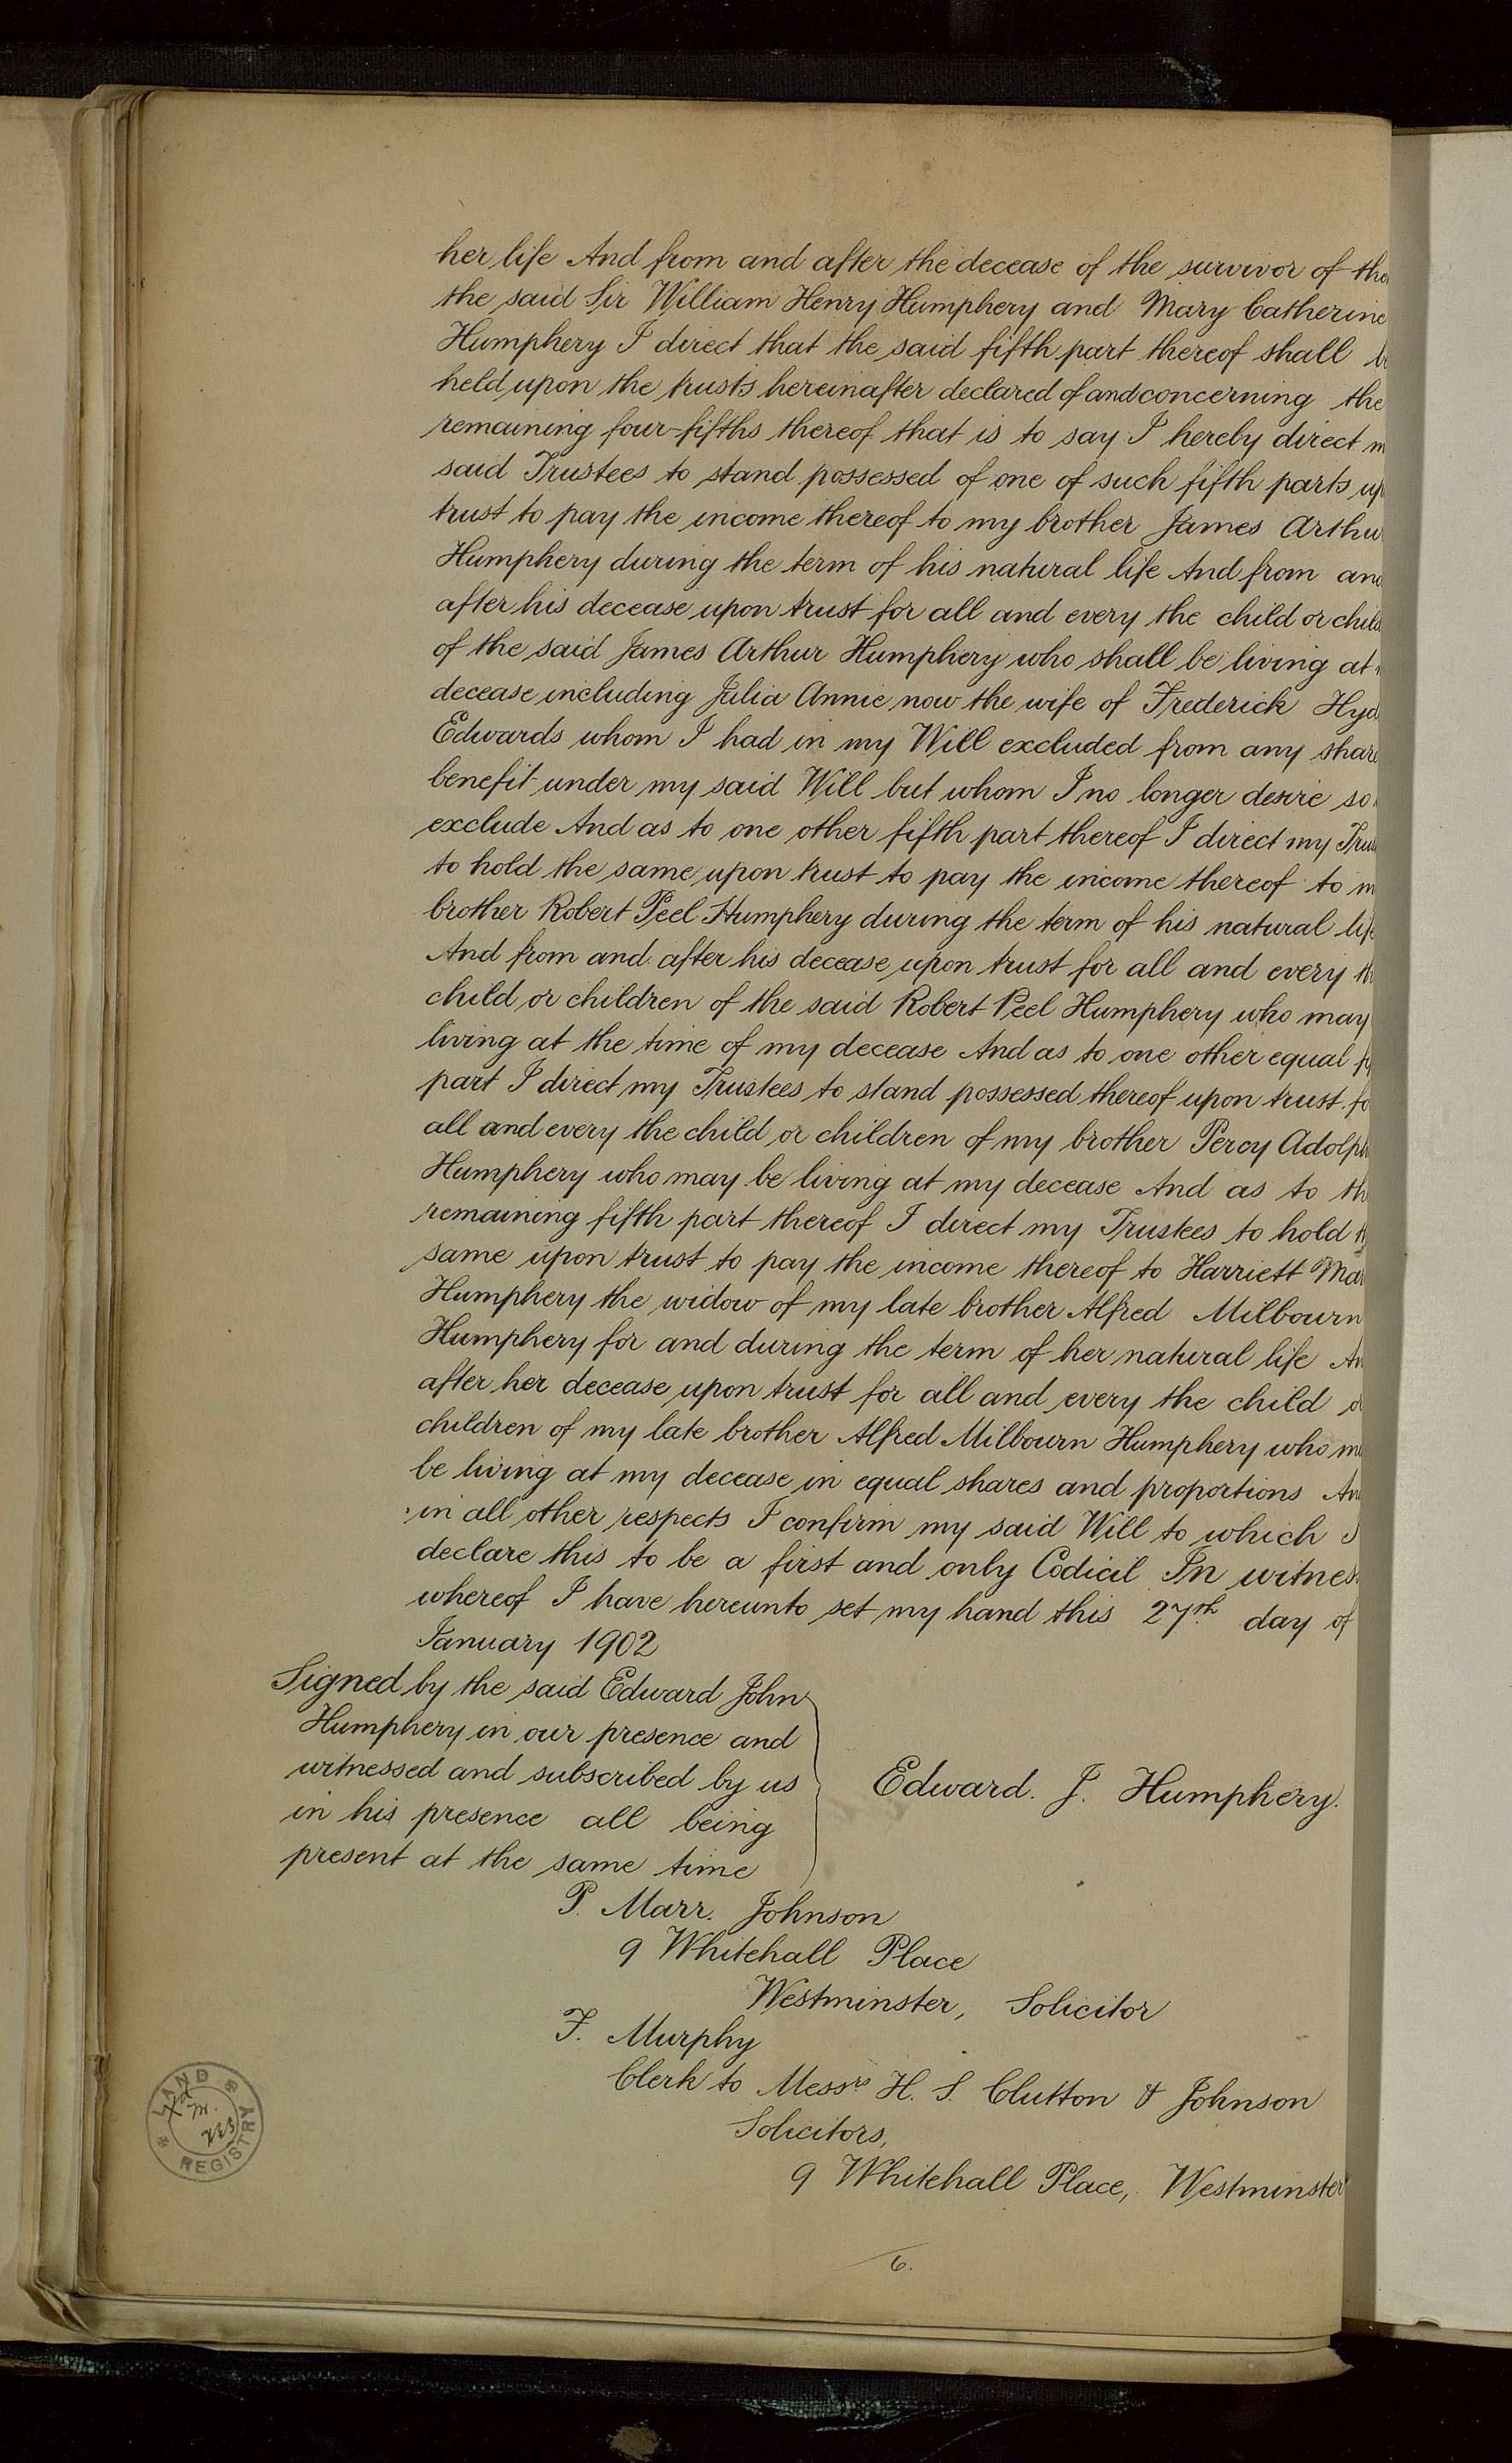 her life And from and after the decease of the survivor of
the said Sir William Henry Humphery and Mary Catherine
Humphery I direct that the said fifth part thereof shall
held upon the trusts hereinafter declared of and concerning the
remaining four-fifths thereof that is to say I hereby direct
said Trustees to stand possessed of one of such fifth parts
trust to pay the income thereof to my brother James Arthur
Humphery during the term of his natural life And from and
after his decease upon trust for all and every the child or
of the said James Arthur Humphery who shall be living at
decease including Julia Annie now the wife of Frederick
Edwards whom I had in my Will excluded from any share
benefit under my said Will but whom I no longer desire so
exclude And as to one other fifth part thereof I direct my
to hold the same upon trust to pay the income thereof to
brother Robert Peel Humphery during the term of his natural life
And from and after his decease upon trust for all and every
child or children of the said Robert Peel Humphery who may
living at the time of my decease And as to one other equal
part I direct my Trustees to stand possessed thereof upon trust
all and every the child or children of my brother Percy
Humphery who may be living at my decease And as to
remaining fifth part thereof I direct my Trustees to hold
same upon trust to pay the income thereof to Harriett
Humphery the widow of my late brother Alfred Milbourn
Humphery for and during the term of her natural life
after her decease upon trust for all and every the child
children of my late brother Alfred Milbourn Humphery who
be living at my decease in equal shares and proportions
in all other respects I confirm my said Will to which I
declare this to be a first and only Codicil In witness
whereof I have hereunto set my hand this 27th day of
January 1902
Signed by the said Edward John
Humphery in our presence and
witnessed and subscribed by us
in his presence all being
present at the same time
Edward. J. Humphery.
P. Marr. Johnson
9 Whitehall Place
Westminster, Solicitor
F. Murphy
Clerk to Messrs H. S. Clutton & Johnson
Solicitors,
9 Whitehall Place, Westminster
LAND REGISTRY
6.